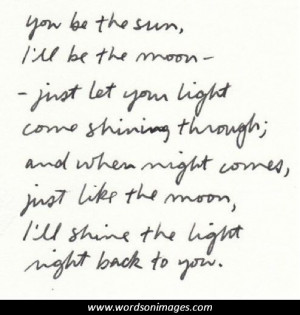 you be the sun,
I'll be the moon -
- just let your light
come shining through;
and when night comes,
just like the moon,
I'll shine the light
right back to you.
www.wordsonimages.com